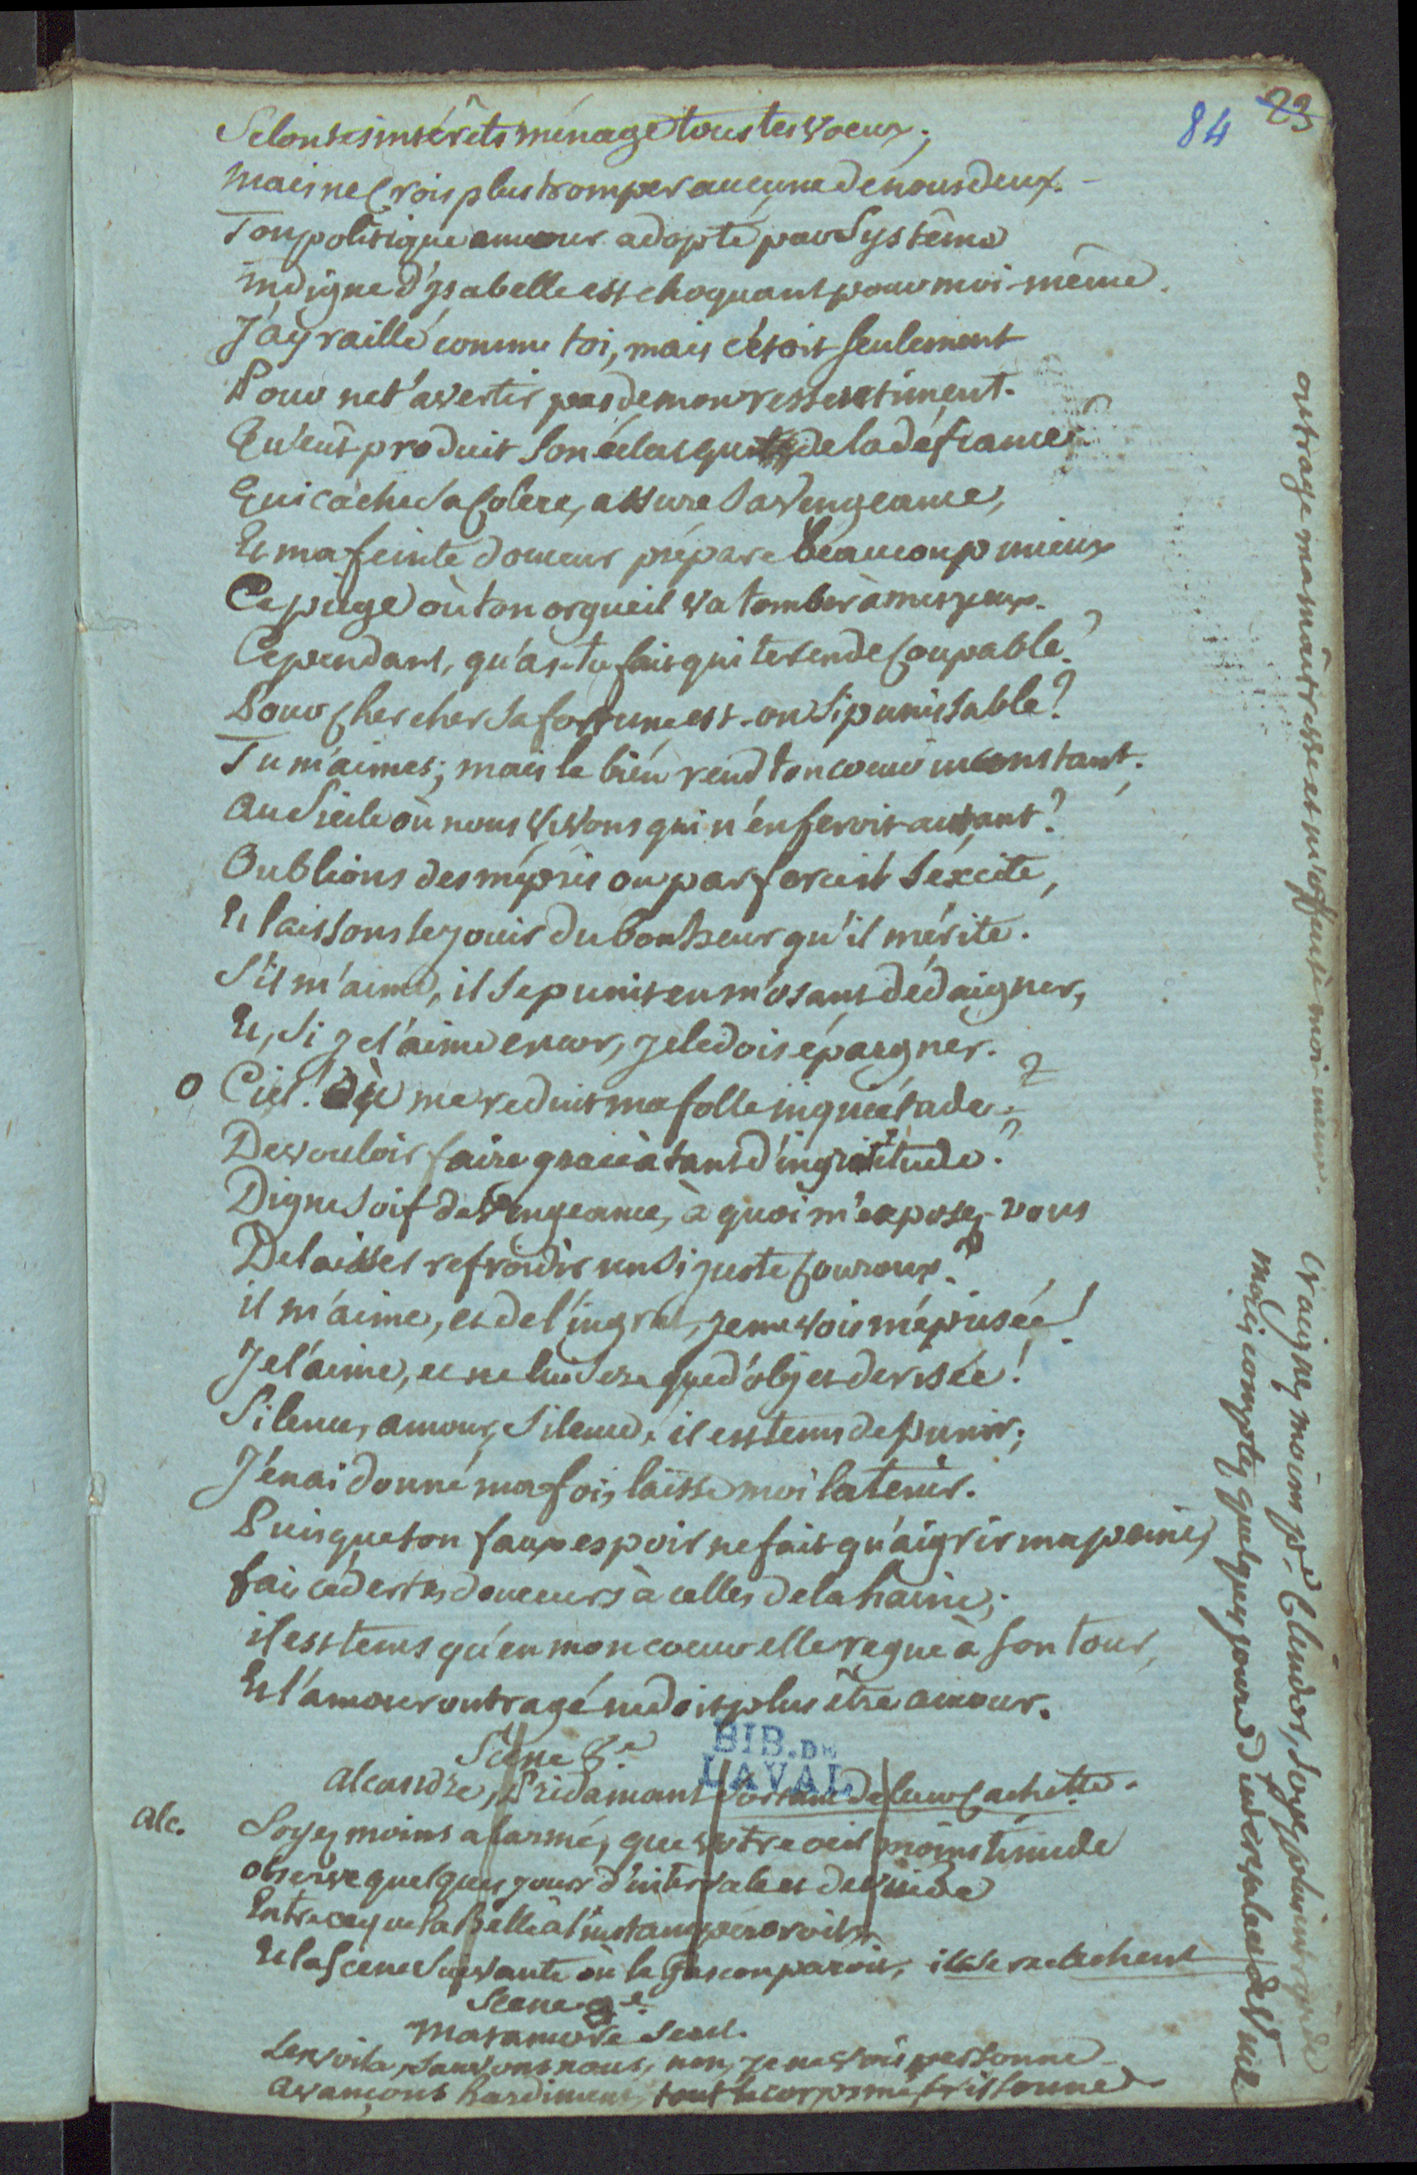 23
84
Selon tes intérêts ménage tous tes voeux;
mais ne crois plus tromper aucune de nous deux.
Ton politique amour adopté par Systême
indigne d'ysabelle est choquant pour moi-même.
J'ay raillé comme toi, mais c'étoit seulement
Pour ne t'avertir pas de mon ressentiment.
Qu'eut produit son éclat que de la défiance?
Qui cache sa Colere, assure sa Vengeance,
Et ma feinte douceur prépare beaucoup mieux
Ce piege où ton orgueil va tomber à mes yeux.
Cependant, qu'as-tu fait qui te rende coupable?
Pour chercher sa fortune est-on si punissable?
Tu m'aimes; mais le bien rend ton coeur inconstant.
au Siecle où nous vivons qui n'en feroit autant?
Oublions des mépris ou par force il s'éxcite,
Et laissons le jouir du bonheur qu'il mérite.
S'il m'aime, il se punit en m'osant dédaigner,
Et, si je l'aime encor, je le dois épargner.
O Ciel! où me reduit ma folle inquiétude
De vouloir faire grace à tant d'ingratitude?
Digne soif de Vengeance, à quoi m'exposez-vous
De laisser refroidir un si juste couroux?
il m'aime, et de l'ingrat, je me vois méprisée!
Je l'aime, et ne lui sers que d'objet de risée!
Silence, amour, Silence, il est tems de punir;
J'en ai donné ma foi, laisse moi la tenir.
Puisque ton faux espoir ne fait qu'aigrir ma peine,
fai céder tes douceurs à celles de la haine;
il est tems qu'en mon coeur elle regne à son tour,
Et l'amour outragé ne doit plus être amour.
Scene 8e
alcandre, Pridamant sortant de leur Cachette.
alc. Soyez moins alarmé, que votre oeil moins timide
observe quelques jours d'intervale et de vuide
Entre ce que la Belle à l'instant
Et la scene suivante où le Gascon paroit, ils se recachent
Scene 9e
Matamore seul.
Les voila, sauvons nous, non, je ne vois personne
avançons hardiment, tout le corps me frissonne
BIB. DE
LAVAL
outrage ma maitresse et m'offense moi meme.
Craignez moins pr Clindor, soyez plus intrépide
mais comptez quelques jours d'intervalaes de vuide